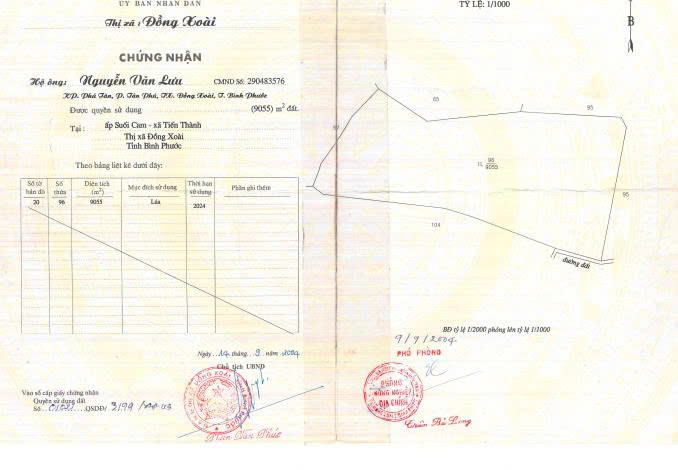 ỦY BAN NHÂN DÂN
Thị xã : Đồng Xoài
CHỨNG NHẬN
Hộ ông: Nguyễn Văn Lưu CMND Số: 290483576
KP. Phú Tân, P. Tân Phú, TX. Đồng Xoài, T. Bình Phước
Được quyền sử dụng (9055) m² đất
Tại : ấp Suối Cam - xã Tiến Thành
Thị xã Đồng Xoài
Tỉnh Bình Phước
Theo bảng liệt kê dưới đây:
Số tờ bản đồ Số thửa Diện tích (m²) Mục đích sử dụng Thời hạn sử dụng Phần ghi thêm
20 96 9055 Lúa 2024
Ngày 14 tháng 9 năm 2004
Chủ tịch UBND
Vào sổ cấp giấy chứng nhận
Quyền sử dụng đất
Số QSDĐ/ 3199
TỶ LỆ: 1/1000
B
65
95
96
9055
95
104
đường đất
BĐ tỷ lệ 1/2000 phóng lên tỷ lệ 1/1000
9/9/2004
PHÓ PHÒNG
PHÒNG
NÔNG NGHIỆP
ĐỊA CHÍNH
Trần Bá Long